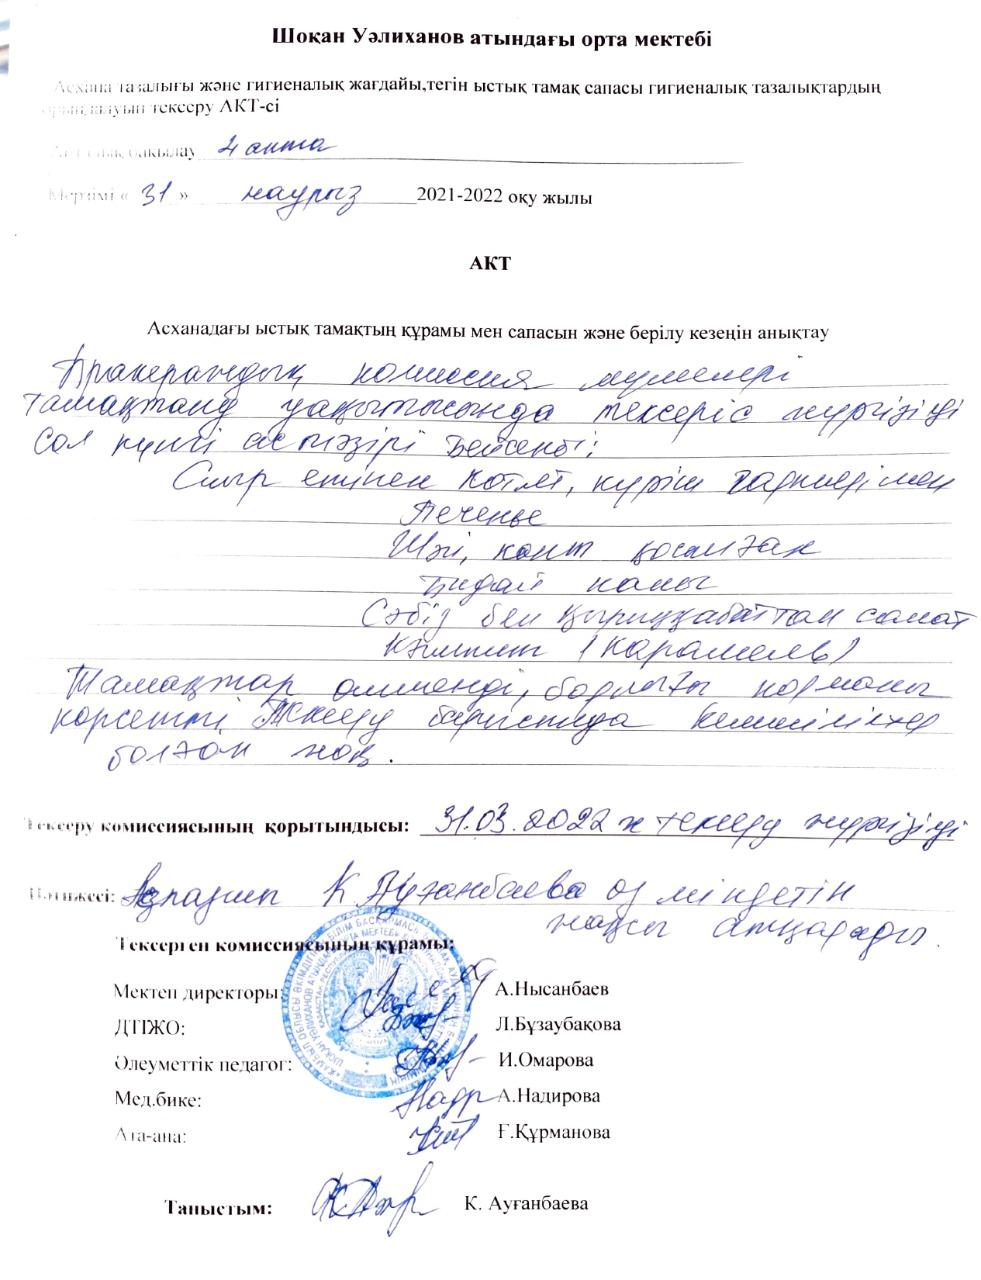 Шоқан Уәлиханов атындағы орта мектебі
Асхана тазалығы және гигиеналық жағдайы,тегін ыстық тамақ сапасы гигиеналық тазалықтардың
орындалуын тексеру АКТ-сі
бақылау 4 апта
Мерзімі « 31 » наурыз 2021-2022 оқу жылы
АКТ
Асханадағы ыстық тамақтың құрамы мен сапасын және берілу кезеңін анықтау
Бракераждық комиссия мүшелері
тамақтану уақытысында тексеріс жүргізді
Сол күнгі ас мәзірі Бейсенбі:
Сиыр етінен котлет, күріш гарнирімен
Печенье
Шәй, кант қосылған
Бидай наны
Сәбіз бен қырыққабаттан салат
Кәмпит (карамель)
Тамақтар өлшенді, барлығы норманы
көрсетті. Тексеру барысында кемшіліктер
болған жоқ.
Тексеру комиссиясының қорытындысы: 31.03.2022 ж тексеру жүргізілді
Нәтижесі: Аспазшы К Ауғанбаева өз міндетін
жақсы атқарады.
Тексерген комиссиясының құрамы:
Мектеп директоры: А.Нысанбаев
ДТІЖО: Л.Бұзаубақова
Әлеуметтік педагог: И.Омарова
Мед.бике: А.Надирова
Ата-ана: Ғ.Құрманова
Таныстым: К. Ауғанбаева